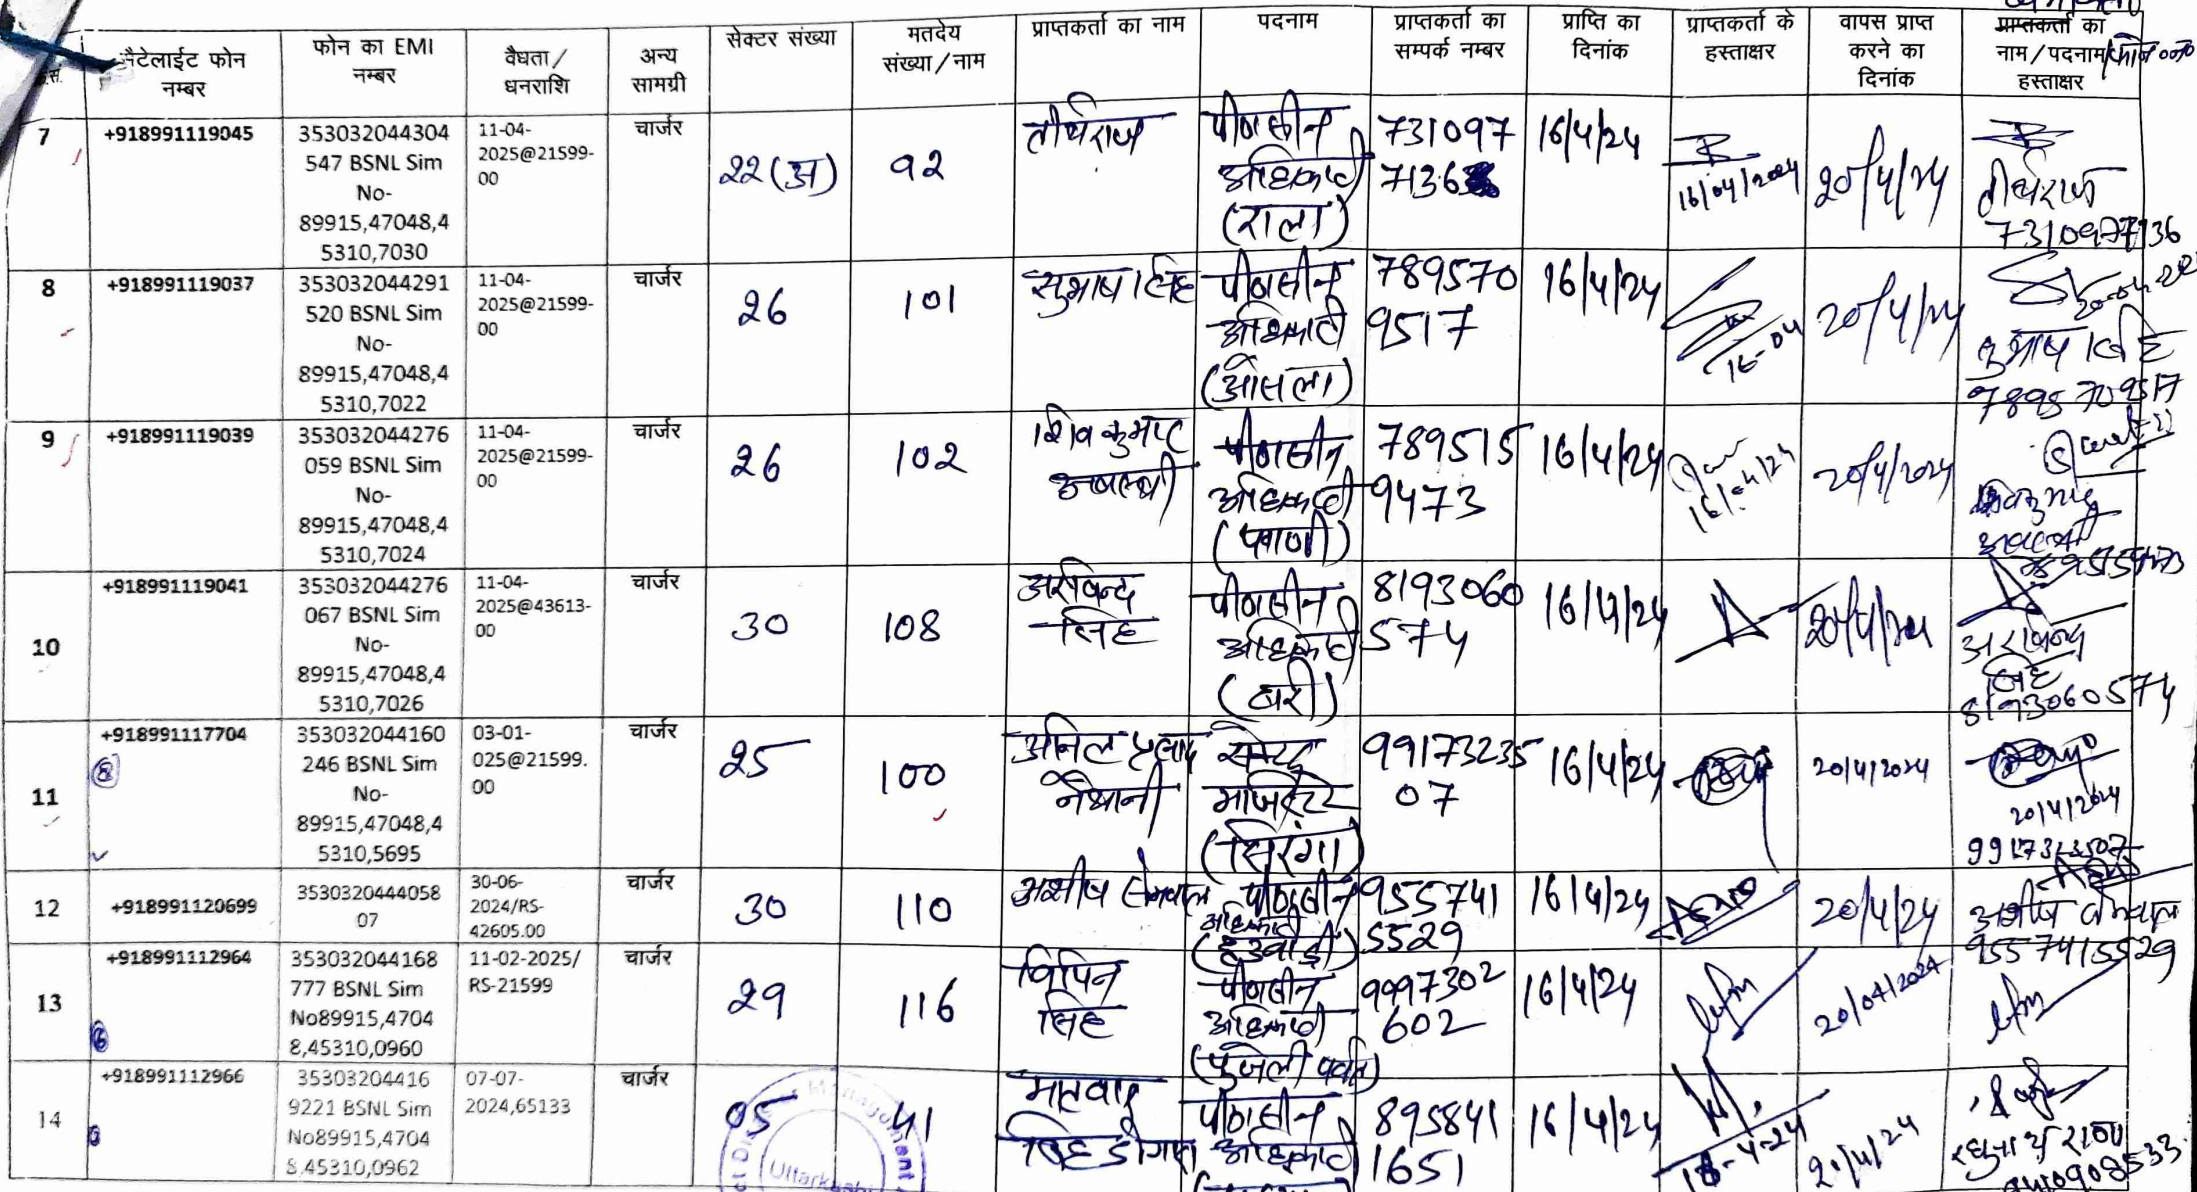 सैटेलाईट फोन नम्बर
फोन का EMI नम्बर
वैधता/ धनराशि
अन्य सामग्री
सेक्टर संख्या
मतदेय संख्या/नाम
प्राप्तकर्ता का नाम
पदनाम
प्राप्तकर्ता का सम्पर्क नम्बर
प्राप्ति का दिनांक
प्राप्तकर्ता के हस्ताक्षर
वापस प्राप्त करने का दिनांक
प्राप्तकर्ता का नाम/पदनाम/ हस्ताक्षर
7
+918991119045
353032044304
547 BSNL Sim
No-
89915,47048,4
5310,7030
11-04-
2025@21599-
00
चार्जर
22(अ)
92
तीर्थराज
पीठासीन
अधिकारी
(राला)
731097
7136
16/4/24
16/04/2024
20/4/24
तीर्थराज
7310977136
8
+918991119037
353032044291
520 BSNL Sim
No-
89915,47048,4
5310,7022
11-04-
2025@21599-
00
चार्जर
26
101
सुभाष सिंह
पीठासीन
अधिकारी
(ओसला)
789570
9517
16/4/24
16-04
20/4/24
सुभाष सिंह
7895709517
9
+918991119039
353032044276
059 BSNL Sim
No-
89915,47048,4
5310,7024
11-04-
2025@21599-
00
चार्जर
26
102
शिव कुमार
अवस्थी
पीठासीन
अधिकारी
(पवाणी)
789515
9473
16/4/24
16/04/24
20/4/2024
शिवकुमार
अवस्थी
7895159473
10
+918991119041
353032044276
067 BSNL Sim
No-
89915,47048,4
5310,7026
11-04-
2025@43613-
00
चार्जर
30
108
अरविन्द
सिंह
पीठासीन
अधिकारी
8193060
574
16/4/24
20/4/24
अरविन्द
सिंह
8193060574
11
+918991117704
353032044160
246 BSNL Sim
No-
89915,47048,4
5310,5695
03-01-
025@21599.
00
चार्जर
25
100
अनिल प्रसाद
नैथानी
मजिस्ट्रेट
(सिरगा)
99173235
07
16/4/24
20/4/2024
20/4/2024
9917323507
12
+918991120699
3530320444058
07
30-06-
2024/RS-
42605.00
चार्जर
30
110
आशीष सेमवाल
पीठासीन
अधिकारी
(हडवाड़ी)
955741
5529
16/4/24
20/4/24
आशीष सेमवाल
9557415529
13
+918991112964
353032044168
777 BSNL Sim
No89915,4704
8,45310,0960
11-02-2025/
RS-21599
चार्जर
29
116
विपिन
सिंह
पीठासीन
अधिकारी
9997302
602
16/4/24
20/04/2024
14
+918991112966
35303204416
9221 BSNL Sim
No89915,4704
8,45310,0962
07-07-
2024,65133
चार्जर
05
41
पीठासीन
अधिकारी
895841
1651
16/4/24
21/4/24
Management
Uttarkashi